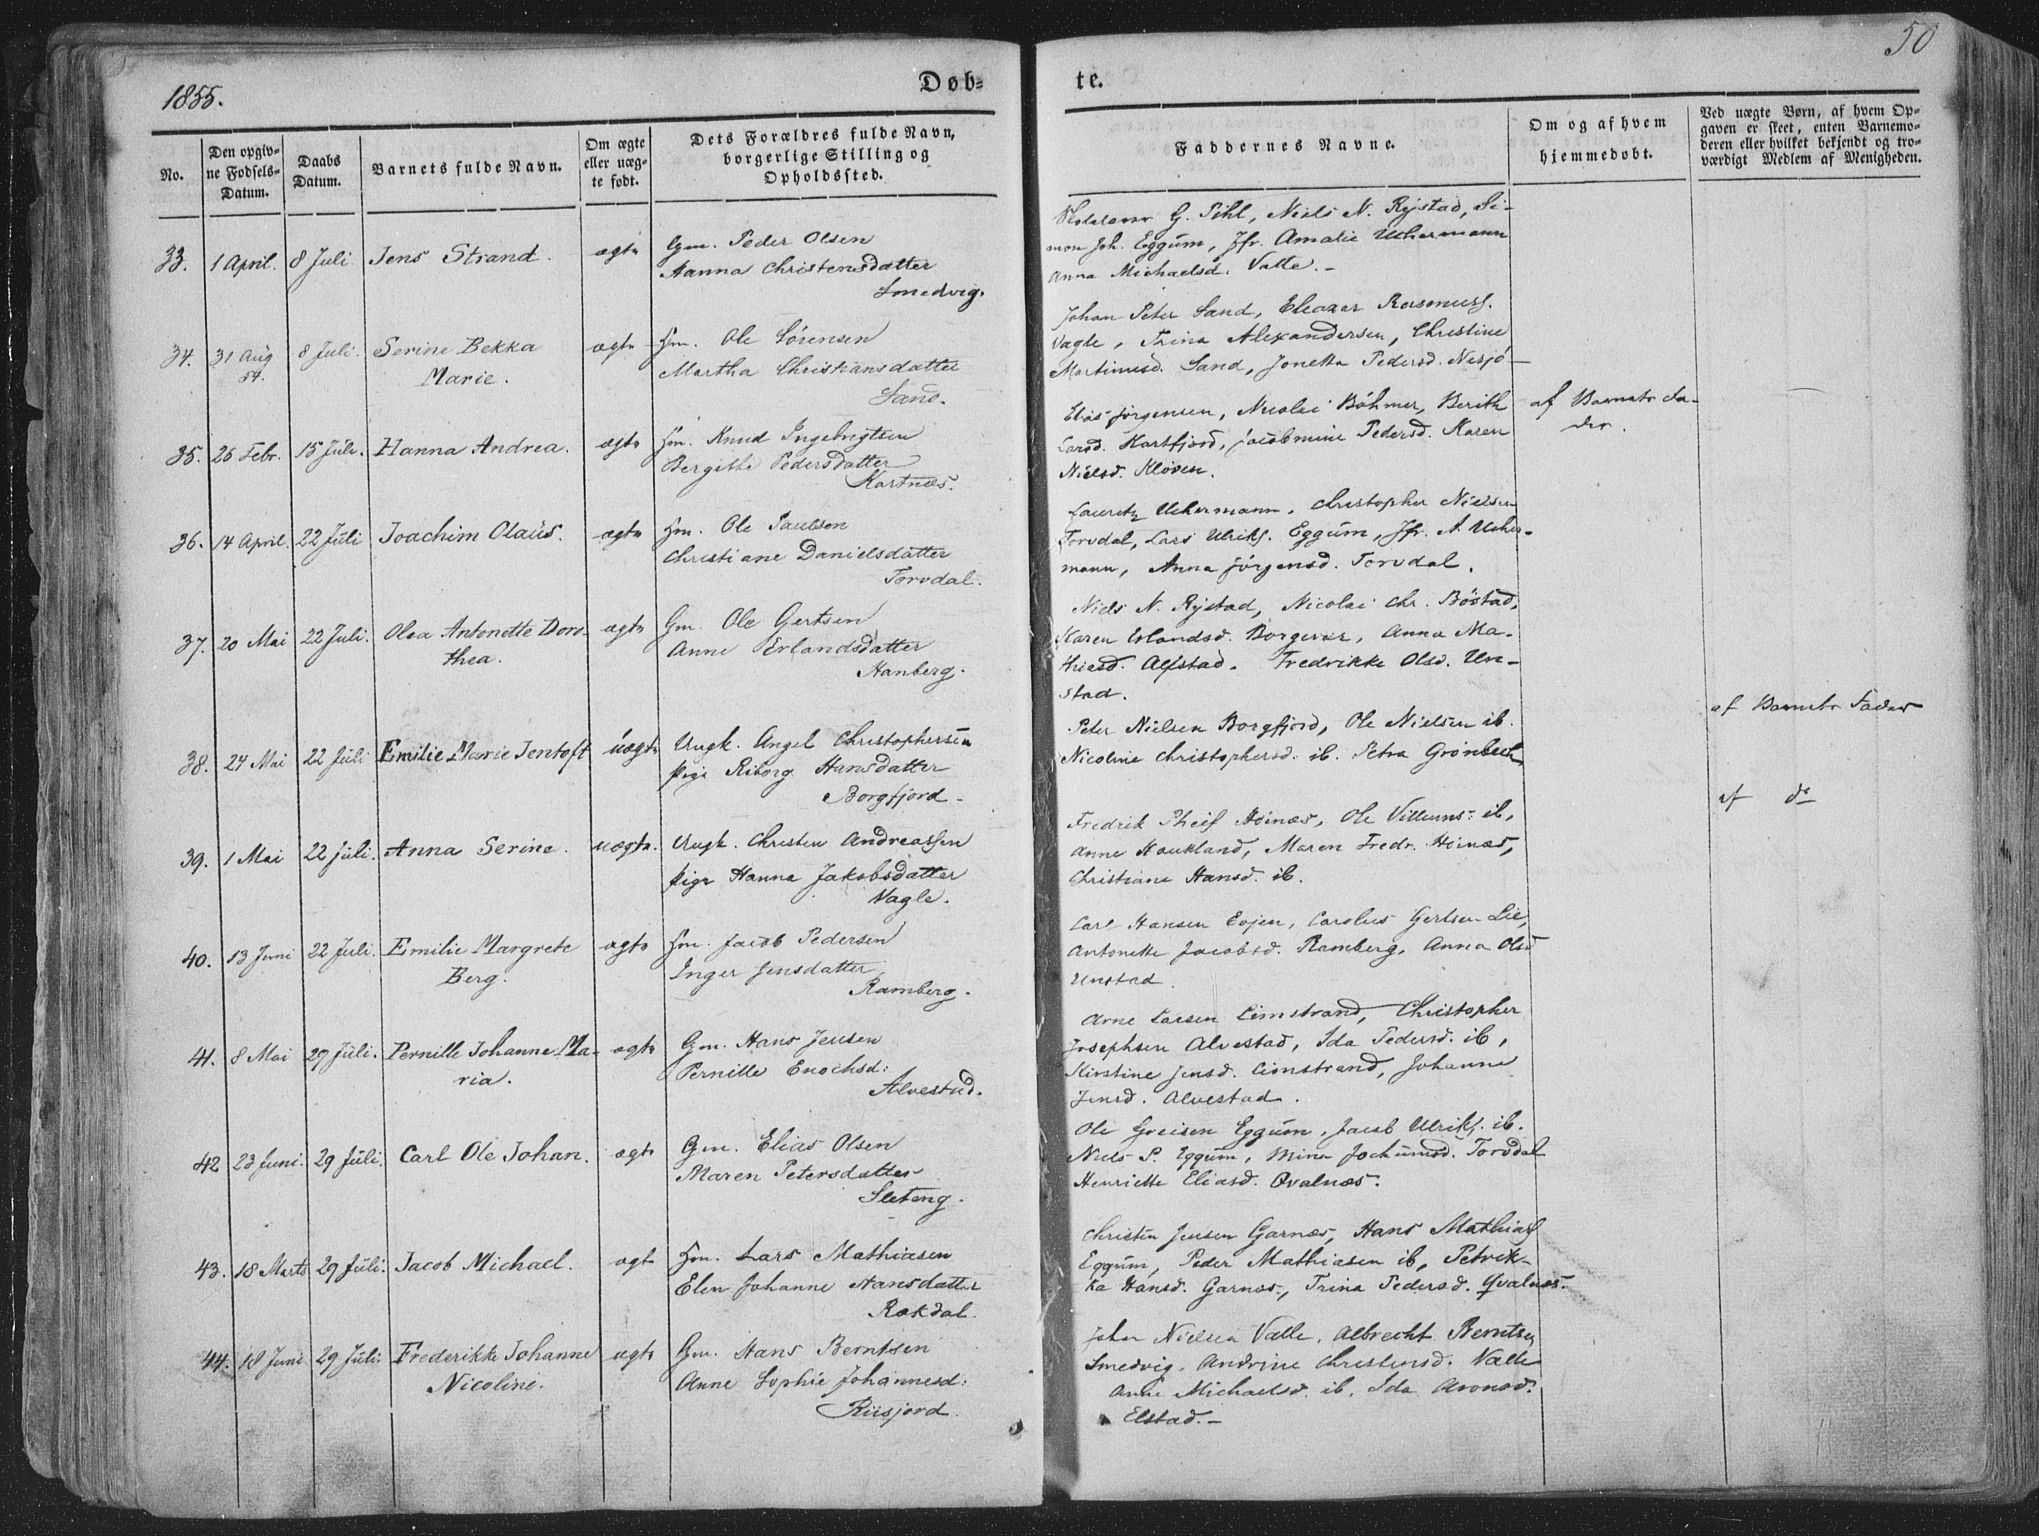 1855.
Døb-
te.
50
No.
Den opgiv-
ne Fødsels-
Datum.
Daabs
Datum.
Barnets fulde Navn.
Om ægte
eller uæg-
te født.
Dets Forældres fulde Navn,
borgerlige Stilling og
Opholdssted.
Faddernes Navne.
Om og af hvem
hjemmedøbt.
Ved uægte Børn, af hvem Op-
gaven er skeet, enten Barnemo-
deren eller hvilket bekjendt og tro-
værdigt Medlem af Menigheden.
33. 1 April. 8 Juli. Jens Strand. ægte
Gm. Peder Olsen
Hanna Christensdatter
Smedvig.
G. Pihl, Niels N. Rystad, Si-
mon Joh. Eggum, Jfr. Amalie Uchermann
Anna Michaelsd. Valle.-
34. 31 Aug 54. 8 Juli. Serine Bekka
Marie. ægte
Hm. Ole Sørensen
Martha Christiansdatter
Sand.
Johan Peter Sand, Eleazar Rasmuss.
Vagle, Trina Alexandersen, Christine
Martinusd. Sand, Jonetta Pedersd. Nesjø-
35. 26 Febr. 15 Juli. Hanna Andrea. ægte
Hm. Knud Ingebrigtsen
Bergithe Pedersdatter
Kartnæs.
Elias Jørgensen, Nicolai Bøhmer, Berith
Larsd. Kartfjord, Jacobmine Pedersd. Karen
Nielsd. Kløven.
af Barnets Fa-
der.
36. 14 April. 22 Juli Joachim Olaus. ægte
Hm. Ole Paulsen
Christiane Danielsdatter
Torvdal.
Lauritz Uchermann, Christopher Nielsen
Torvdal, Lars Ulriks. Eggum, Jfr. A. Ucher-
mann, Anna Jørgensd. Torvdal.
37. 20 Mai 22 Juli. Olea Antonette Doro-
thea. ægte
Gm. Ole Gertsen
Anne Erlandsdatter
Hanberg.
Niels N. Rystad, Nicolai Chr. Bøstad,
Karen Erlandsd. Borgevær, Anna Ma-
thiasd. Alfstad. Fredrikke Olsd. Un-
stad.
38. 24 Mai 22 Juli Emilie Marie Jentoft uægte
Ungk. Angel Christophersen
Pige Riborg Hansdatter
Borgfjord-
Peter Nielsen Borgfjord, Ole Nielsen ib.
Nicoline Christophersd. ib. Petra Grønbech
af Barnets Fader
39. 1 Mai 22 Juli. Anna Serine. uægte.
Ungk. Christen Andreassen
Pige Hanna Jakobsdatter
Vagle.
Fredrik Pheif Høinæs, Ole Villums. ib,
Anne Haukland, Maren Fredr. Høinæs,
Christiane Hansd. ib.
af do
40. 13 Juni 22 Juli. Emilie Margrete
Berg. ægte
Hm. Jacob Pedersen
Inger Jensdatter
Ramberg.
Carl Hansen Evjen, Carolus Gertsen Lie,
Antonette Jacobsd. Ramberg, Anna Olsd
Unstad.
41. 8 Mai 29 Juli. Pernille Johanne Ma-
ria. ægte
Gm. Hans Jensen
Pernille Enochsd:
Alvestad.
Arne Larsen Limstrand, Christopher
Josephsen Alvestad, Ida Pedersd. ib,
Kirstine Jensd. Limstrand, Johanna
Jensd. Alvestad.
42 23 Juni. 29 Juli. Carl Ole Johan. ægte
Gm. Elias Olsen
Maren Petersdatter
Sleteng.
Ole Greisen Eggum, Jacob Ulriks. ib.
Niels P. Eggum, Mina Jochumsd. Torvdal
Henriette Eliasd. Qvalnæs.
43. 18 Marts 29 Juli. Jacob Michael. ægt
Hm. Lars Mathiasen
Elen Johanne Hansdatter
Rakdal.
Christen Jensen Garnæs, Hans Mathias
Eggum, Peder Mathiasen ib, Petrik-
ka Hansd. Garnæs, Trina Pedersd. Qvalnæs.
44. 18 Juni. 29 Juli. Frederikke Johanne
Nicoline. ægte
Gm. Hans Berntsen
Anne Sophie Johannesd:
Riisjord.
Johan Nielsen Valle, Albrecht Berntsen
Smedvig. Andrine Christensd. Valle
Anne Michaelsd. ib. Ida Aronsd.
Elstad.-